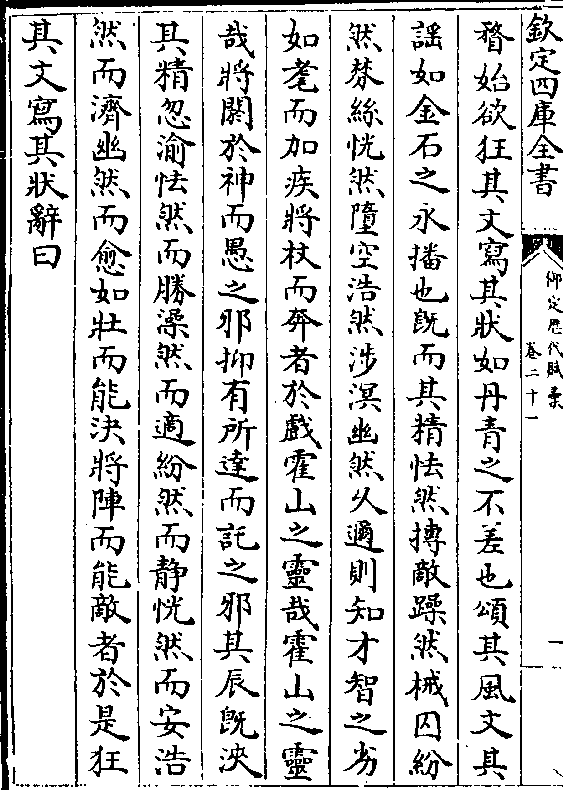 欽定四庫全書
御定歷代賦彙
卷二十一
一
瞀始欲狂其文寫其狀如丹青之不差也頌其風文其
謡如金石之永播也旣而其精怯然摶敵躁然械囚紛
然棼絲恍然墮空浩然涉溟幽然久遁則知才智之劣
如耄而加疾將杖而奔者於戲霍山之靈哉霍山之靈
哉將閟於神而愚之邪抑有所達而託之邪其辰旣浹
其精忽渝怯然而勝澡然而適紛然而静恍然而安浩
然而濟幽然而愈如壯而能決將陣而能敵者於是狂
其文寫其狀辭曰